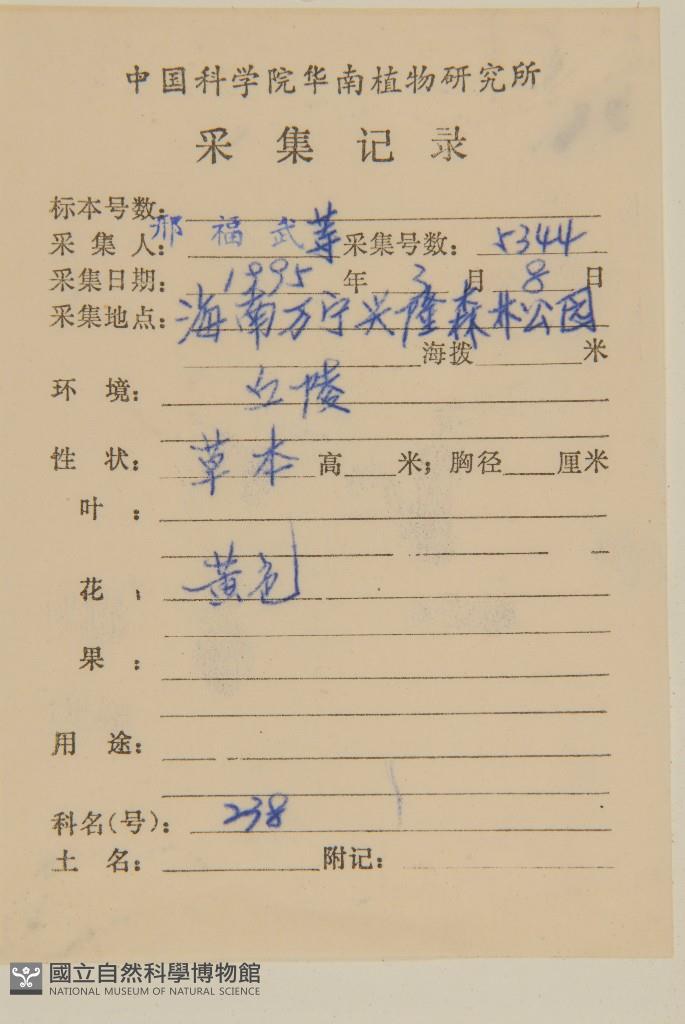 中国科学院华南植物研究所
采集记录
标本号数:
采集人: 邢福武等 采集号数: 5344
采集日期: 1995 年 3 月 8 日
采集地点: 海南万宁兴隆森林公园
海拨 米
环境: 丘陵
性状: 草本 高 米; 胸径 厘米
叶:
花: 黄色
果:
用途:
科名(号): 238
土名: 附记:
國立自然科學博物館
NATIONAL MUSEUM OF NATURAL SCIENCE